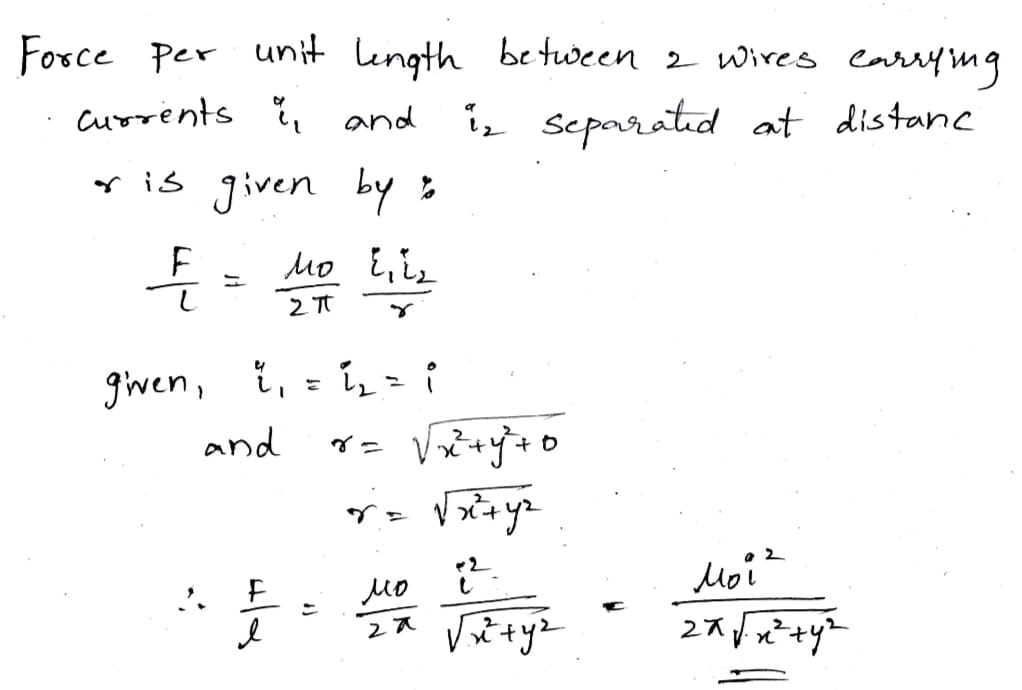 Force per unit length between 2 wires carrying
currents i₁ and i₂ separated at distanc
r is given by :
F/l = μ0/2π i₁i₂/r
given, i₁ = i₂ = i
and r = √x²+y²+0
r = √x²+y²
∴ F/l = μ0/2π i²/√x²+y² = μ0i²/2π√x²+y²